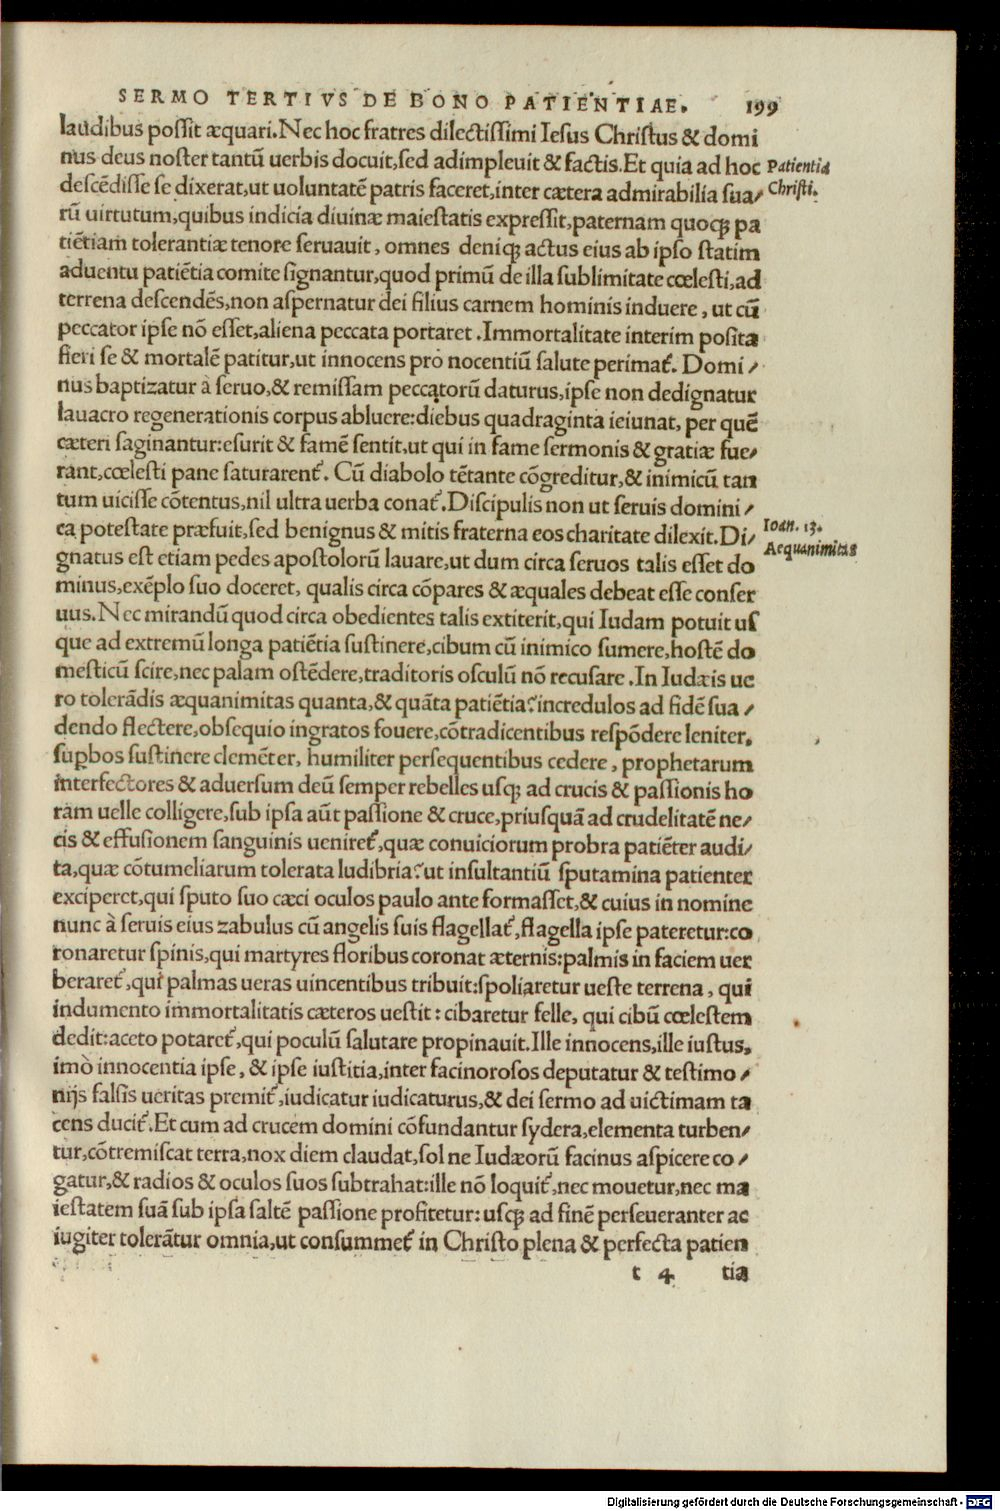 SERMO TERTIVS DE BONO PATIENTIAE. 199
laudibus possit æquari. Nec hoc fratres dilectissimi Iesus Christus & domi
nus deus noster tantū uerbis docuit, sed adimpleuit & factis. Et quia ad hoc
Patientia
descēdisse se dixerat, ut uoluntatē patris faceret, inter cætera admirabilia sua/
Christi.
rū uirtutum, quibus indicia diuinæ maiestatis expressit, paternam quoqꝫ pa
tiētiam tolerantiæ tenore seruauit, omnes deniqꝫ actus eius ab ipso statim
aduentu patiētia comite signantur, quod primū de illa sublimitate cœlesti, ad
terrena descendēs, non aspernatur dei filius carnem hominis induere, ut cū
peccator ipse nō esset, aliena peccata portaret. Immortalitate interim posita
fieri se & mortalē patitur, ut innocens pro nocentiū salute perimat᷒. Domi/
nus baptizatur à seruo, & remissam peccatorū daturus, ipse non dedignatur
lauacro regenerationis corpus abluere: diebus quadraginta ieiunat, per quē
cæteri saginantur: esurit & famē sentit, ut qui in fame sermonis & gratiæ fue/
rant, cœlesti pane saturarent᷒. Cū diabolo tētante cōgreditur, & inimicū tan
tum uicisse cōtentus, nil ultra uerba conat᷒. Discipulis non ut seruis domini/
ca potestate præfuit, sed benignus & mitis fraterna eos charitate dilexit. Di/
Ioan. 13.
Aequanimitas
gnatus est etiam pedes apostolorū lauare, ut dum circa seruos talis esset do
minus, exēplo suo doceret, qualis circa cōpares & æquales debeat esse conser
uus. Nec mirandū quod circa obedientes talis extiterit, qui Iudam potuit us
que ad extremū longa patiētia sustinere, cibum cū inimico sumere, hostē do
mesticū scire, nec palam ostēdere, traditoris osculū nō recusare. In Iudæis ue
ro tolerādis æquanimitas quanta, & quāta patiētia? incredulos ad fidē sua/
dendo flectere, obsequio ingratos fouere, cōtradicentibus respōdere leniter.
supbos sustinere clemēter, humiliter persequentibus cedere, prophetarum
interfectores & aduersum deū semper rebelles usqꝫ ad crucis & passionis ho
ram uelle colligere, sub ipsa aūt passione & cruce, priusquā ad crudelitatē ne/
cis & effusionem sanguinis ueniret᷒, quæ conuiciorum probra patiēter audi/
ta, quæ cōtumeliarum tolerata ludibria? ut insultantiū sputamina patienter
exciperet, qui sputo suo cæci oculos paulo ante formasset, & cuius in nomine
nunc à seruis eius zabulus cū angelis suis flagellat᷒, flagella ipse pateretur: co
ronaretur spinis, qui martyres floribus coronat æternis: palmis in faciem uer
beraret᷒, qui palmas ueras uincentibus tribuit: spoliaretur ueste terrena, qui
indumento immortalitatis cæteros uestit: cibaretur felle, qui cibū cœlestem
dedit: aceto potaret᷒, qui poculū salutare propinauit. Ille innocens, ille iustus,
imò innocentia ipse, & ipse iustitia, inter facinorosos deputatur & testimo/
nijs falsis ueritas premit᷒, iudicatur iudicaturus, & dei sermo ad uictimam ta
cens ducit᷒. Et cum ad crucem domini cōfundantur sydera, elementa turben/
tur, cōtremiscat terra, nox diem claudat, sol ne Iudæorū facinus aspicere co/
gatur, & radios & oculos suos subtrahat: ille nō loquit᷒, nec mouetur, nec ma
iestatem suā sub ipsa saltē passione profitetur: usqꝫ ad finē perseueranter ac
iugiter tolerātur omnia, ut consummet᷒ in Christo plena & perfecta patien
t 4 tia
Digitalisierung gefördert durch die Deutsche Forschungsgemeinschaft - DFG